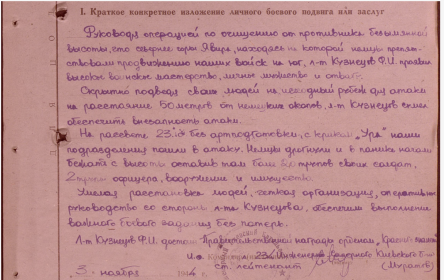 I. Краткое конкретное изложение личного боевого подвига или заслуг
Руководя операцией по очищению от противника безымянной
высоты, что севернее горы Явира, находясь на которой немцы препят-
ствовали продвижению наших войск на юг, л-т Кузнецов Ф.И. проявил
высокое воинское мастерство, личное мужество и отвагу.
Скрытно подведя своих людей на исходный рубеж для атаки
на расстояние 50 метров от немецких окопов, л-т Кузнецов сумел
обеспечить внезапность атаки.
На рассвете 23 без артподготовки, с криком "Ура" наши
подразделения пошли в атаку. Немцы дрогнули и в панике начали
бежать с высоты оставив там более трупов своих солдат,
2 трупа офицера, вооружение и имущество.
Умелая расстановка людей, четкая организация, оперативное
руководство со стороны л-та Кузнецова, обеспечили выполнение
важного боевого задания без потерь.
Л-т Кузнецов Ф.И. достоин Правительственной награды орденом "Красного
Инженерного Киевского
ст. лейтенант
3 ноября 194